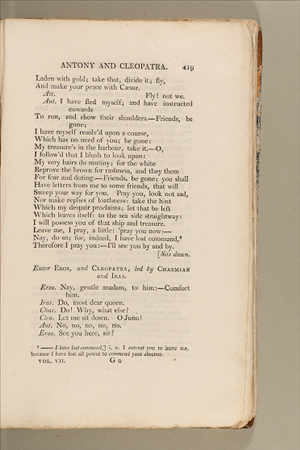 ANTONY AND CLEOPATRA. 419
Laden with gold; take that, divide it; fly,
And make your peace with Cæsar.
Att. Fly! not we.
Ant. I have fled myself; and have instructed
cowards
To run, and show their shoulders.—Friends, be
gone;
I have myself resolv'd upon a course,
Which has no need of you; be gone:
My treasure's in the harbour, take it.—O,
I follow'd that I blush to look upon:
My very hairs do mutiny; for the white
Reprove the brown for rashness, and they them
For fear and doting.—Friends, be gone; you shall
Have letters from me to some friends, that will
Sweep your way for you. Pray you, look not sad,
Nor make replies of loathness: take the hint
Which my despair proclaims; let that be left
Which leaves itself: to the sea side straightway:
I will possess you of that ship and treasure.
Leave me, I pray, a little: 'pray you now:—
Nay, do so; for, indeed, I have lost command,⁸
Therefore I pray you:—I'll see you by and by.
[Sits down.
Enter EROS, and CLEOPATRA, led by CHARMIAN
and IRAS.
Eros. Nay, gentle madam, to him:—Comfort
him.
Iras. Do, most dear queen.
Char. Do! Why, what else?
Cleo. Let me sit down. O Juno!
Ant. No, no, no, no, no.
Eros. See you here, sir?
⁸ —— I have lost command,] i. e. I entreat you to leave me,
because I have lost all power to command your absence.
VOL. VII. G G